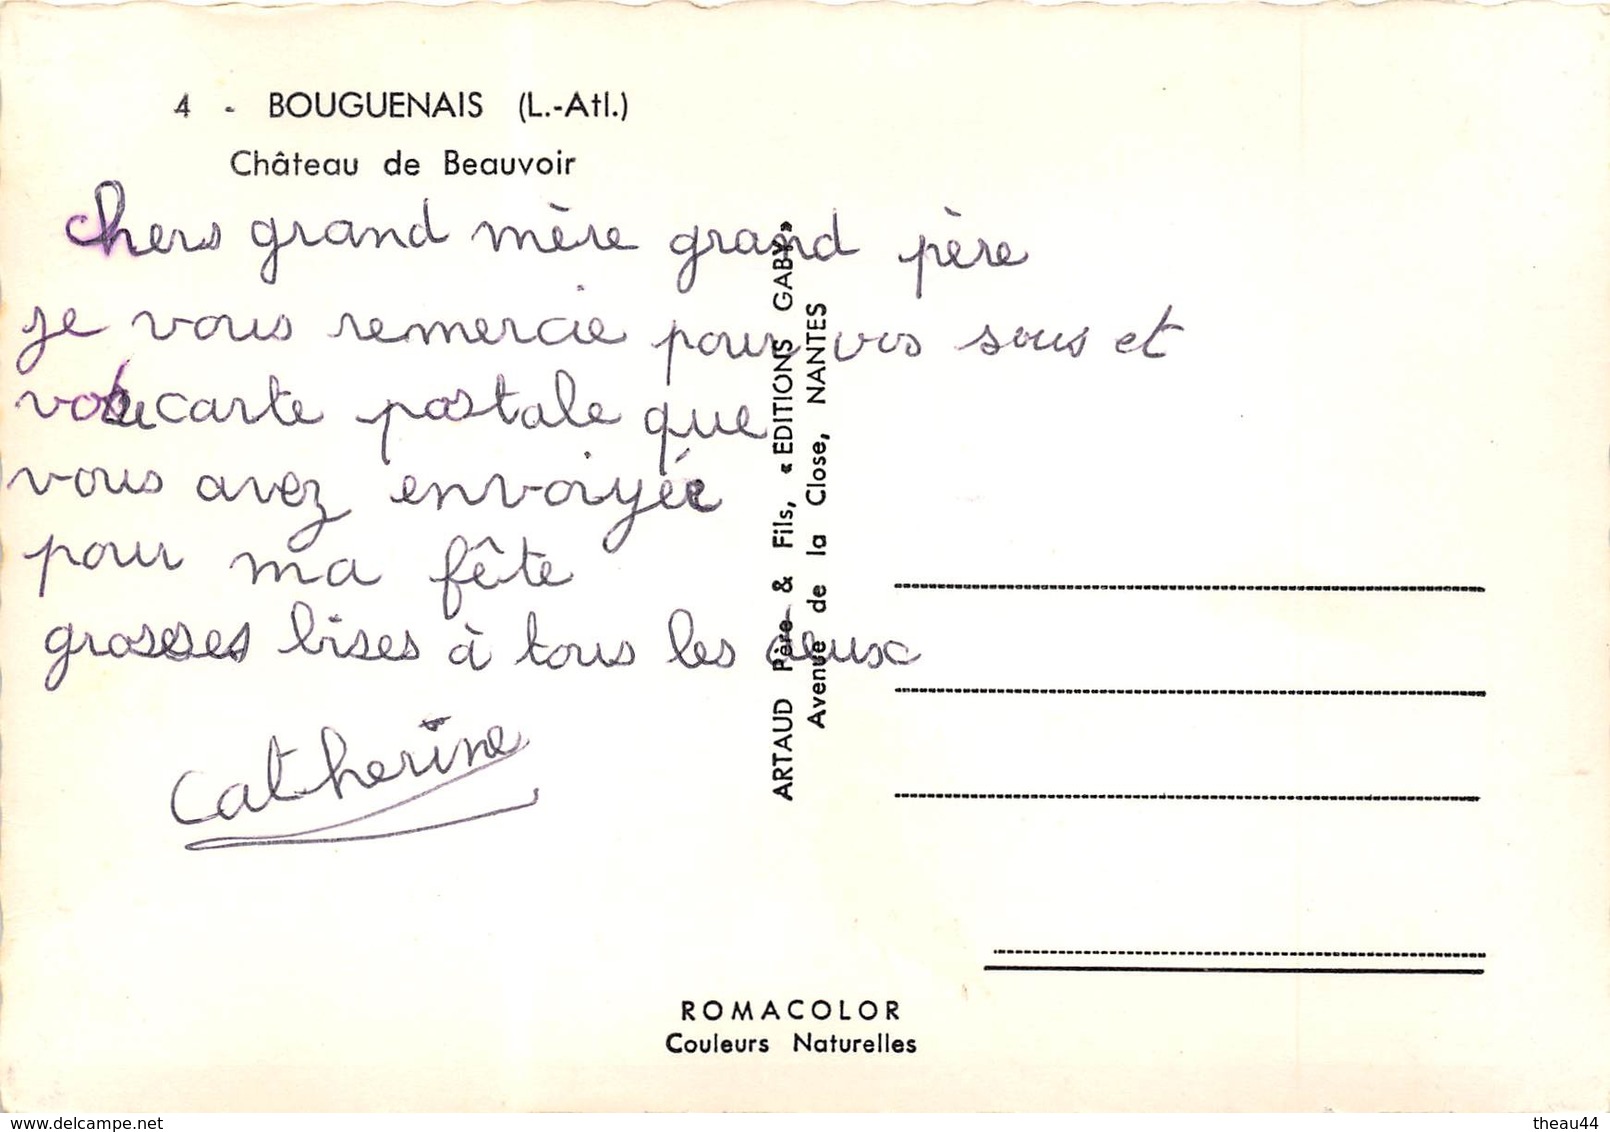 4 - BOUGUENAIS (L.-Atl.)
Château de Beauvoir
chers grand mère grand père
je vous remercie pour vos sous et
votre carte postale que
vous avez envoiyée
pour ma fête
grosses bises à tous les deux
Catherine
ARTAUD Père & Fils, «EDITIONS GABY»
Avenue de la Close, NANTES
ROMACOLOR
Couleurs Naturelles
www.delcampe.net
theau44